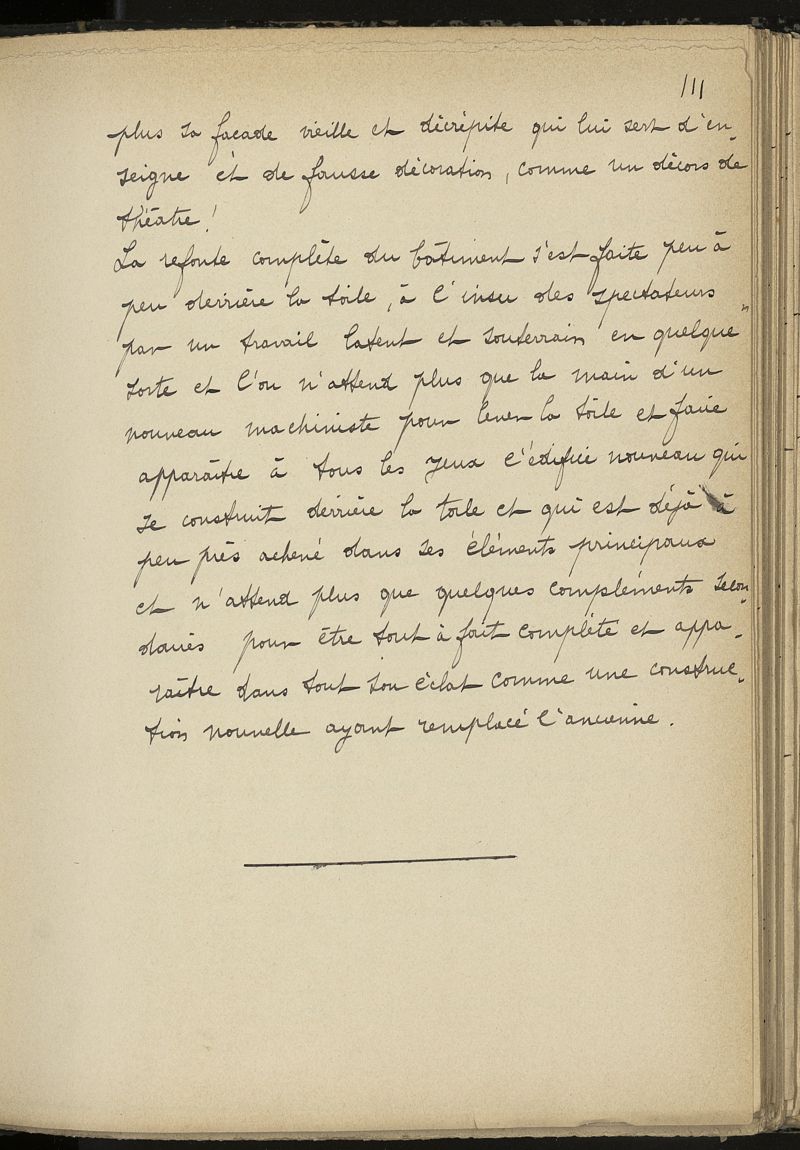 111
plus sa façade vieille et décrépite qui lui sert d'en-
seigne et de fausse décoration, comme un décors de
théâtre !
La refonte complète du bâtiment s'est faite peu à
peu derrière la toile, à l'insu des spectateurs
par un travail latent et souterrain en quelque
sorte et l'on n'attend plus que la main d'un
nouveau machiniste pour lever la toile et faire
apparaître à tous les yeux l'édifice nouveau qui
se construit derrière la toile et qui est déjà à
peu près achevé dans ses éléments principaux
et n'attend plus que quelques compléments secon-
daires pour être tout à fait complète et appa-
raître dans tout son éclat comme une construc-
tion nouvelle ayant remplacé l'ancienne.